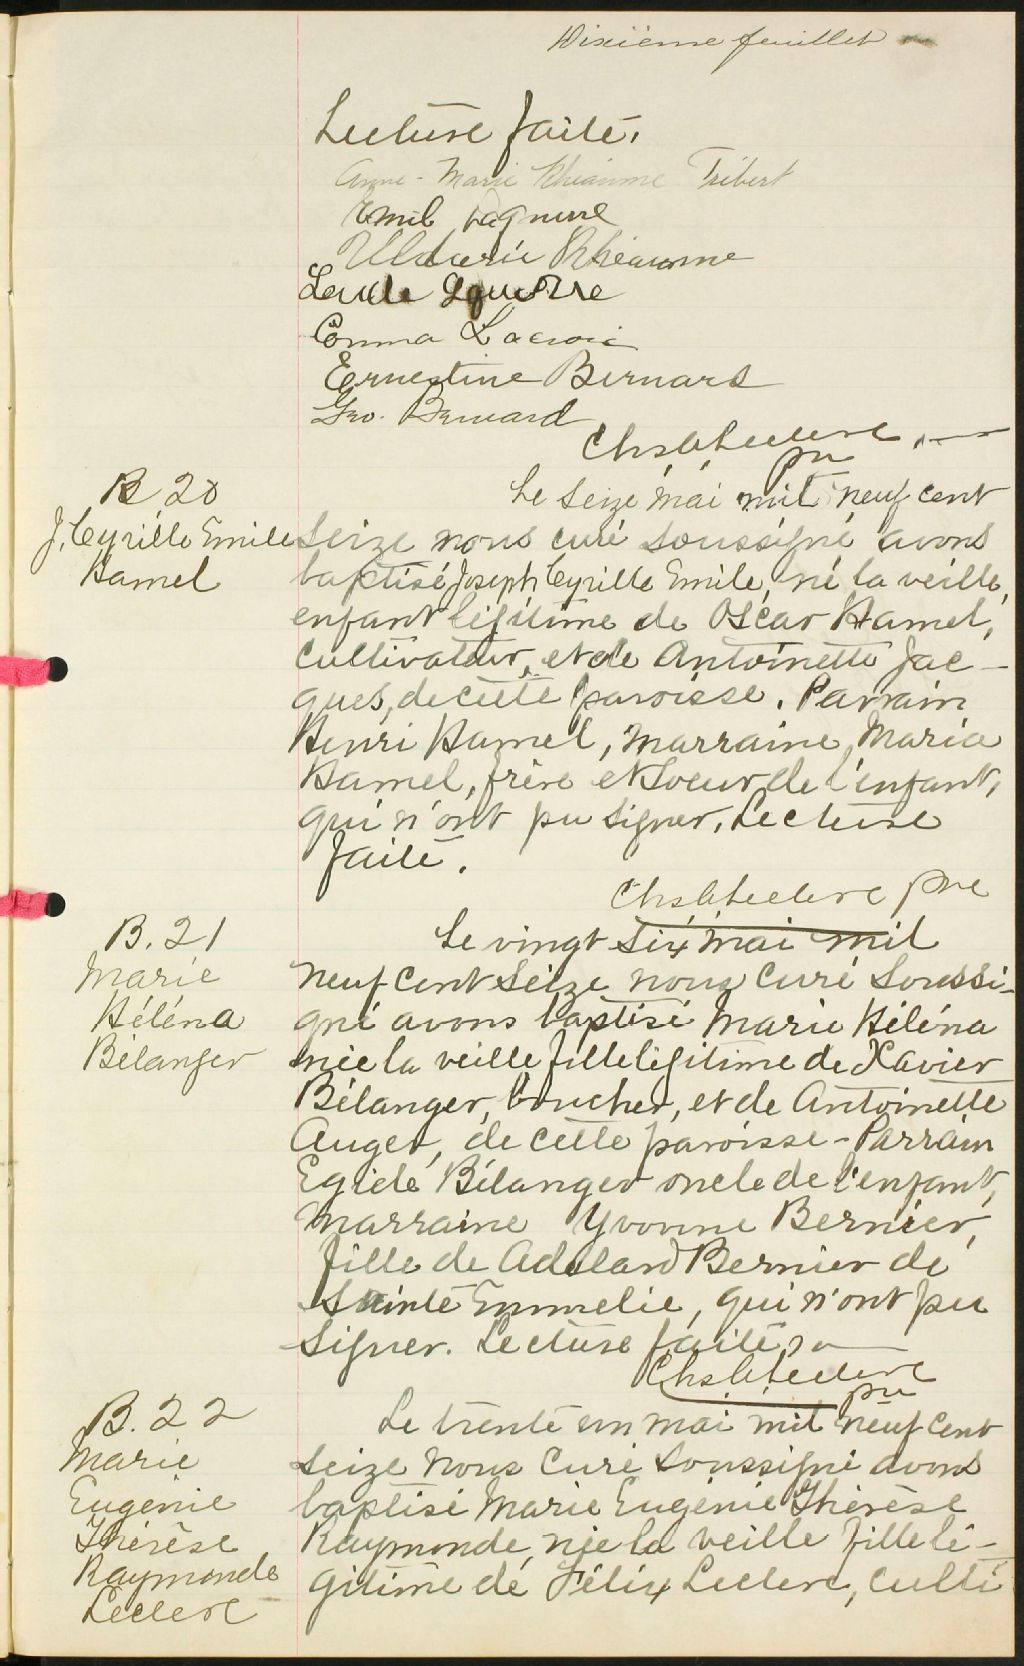 Dixième feuillet
Lecture faite.
Anne-Marie Rhéaume Tribert
Emil
Uldéric Rhéaume
Emma Lacroix
Ernestine Bernard
Geo. Bernard
Leclerc
ptre
B 20
J. Cyrille Emile
Hamel
Le seize mai mil neuf cent
seize nous curé soussigné avons
baptisé Joseph Cyrille Emile, né la veille,
enfant légitime de Oscar Hamel,
cultivateur, et de Antoinette Jac-
ques, de cette paroisse. Parrain
Henri Hamel, marraine Maria
Hamel, frère et soeur de l'enfant,
qui n'ont pu signer. Lecture
faite.
Leclerc ptre
B. 21
Marie
Héléna
Bélanger
Le vingt six mai mil
neuf cent seize nous curé soussi-
gné avons baptisé Marie Héléna
née la veille fille légitime de Xavier
Bélanger, boucher, et de Antoinette
Auger, de cette paroisse - Parrain
Egide Bélanger oncle de l'enfant,
marraine Yvonne Bernier,
fille de Adelard Bernier de
Sainte Emmelie, qui n'ont pu
signer. Lecture faite
Leclerc
ptre
B. 22
Marie
Eugénie
Thérèse
Raymonde
Leclerc
Le trente un mai mil neuf cent
seize nous curé soussigné avons
baptisé Marie Eugénie Thérèse
Raymonde, née la veille fille lé-
gitime de Félix Leclerc, culti